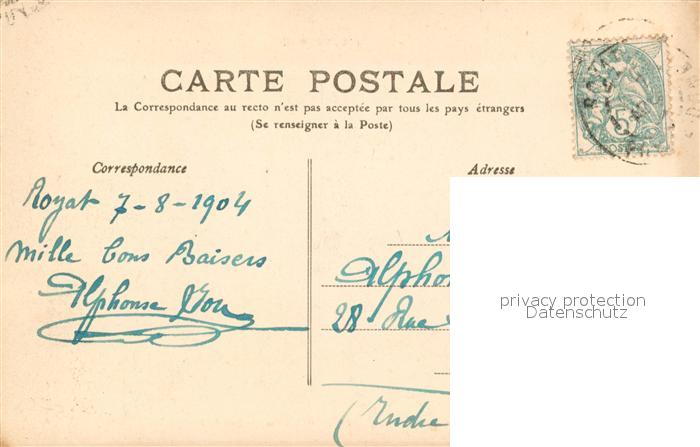 CARTE POSTALE
La Correspondance au recto n'est pas acceptée par tous les pays étrangers
(Se renseigner à la Poste)
Correspondance
Adresse
Royat 7-8-1904
Mille bons Baisers
Alphonse
Alphon
28 Rue
(Indre
5
POSTES
privacy protection
Datenschutz